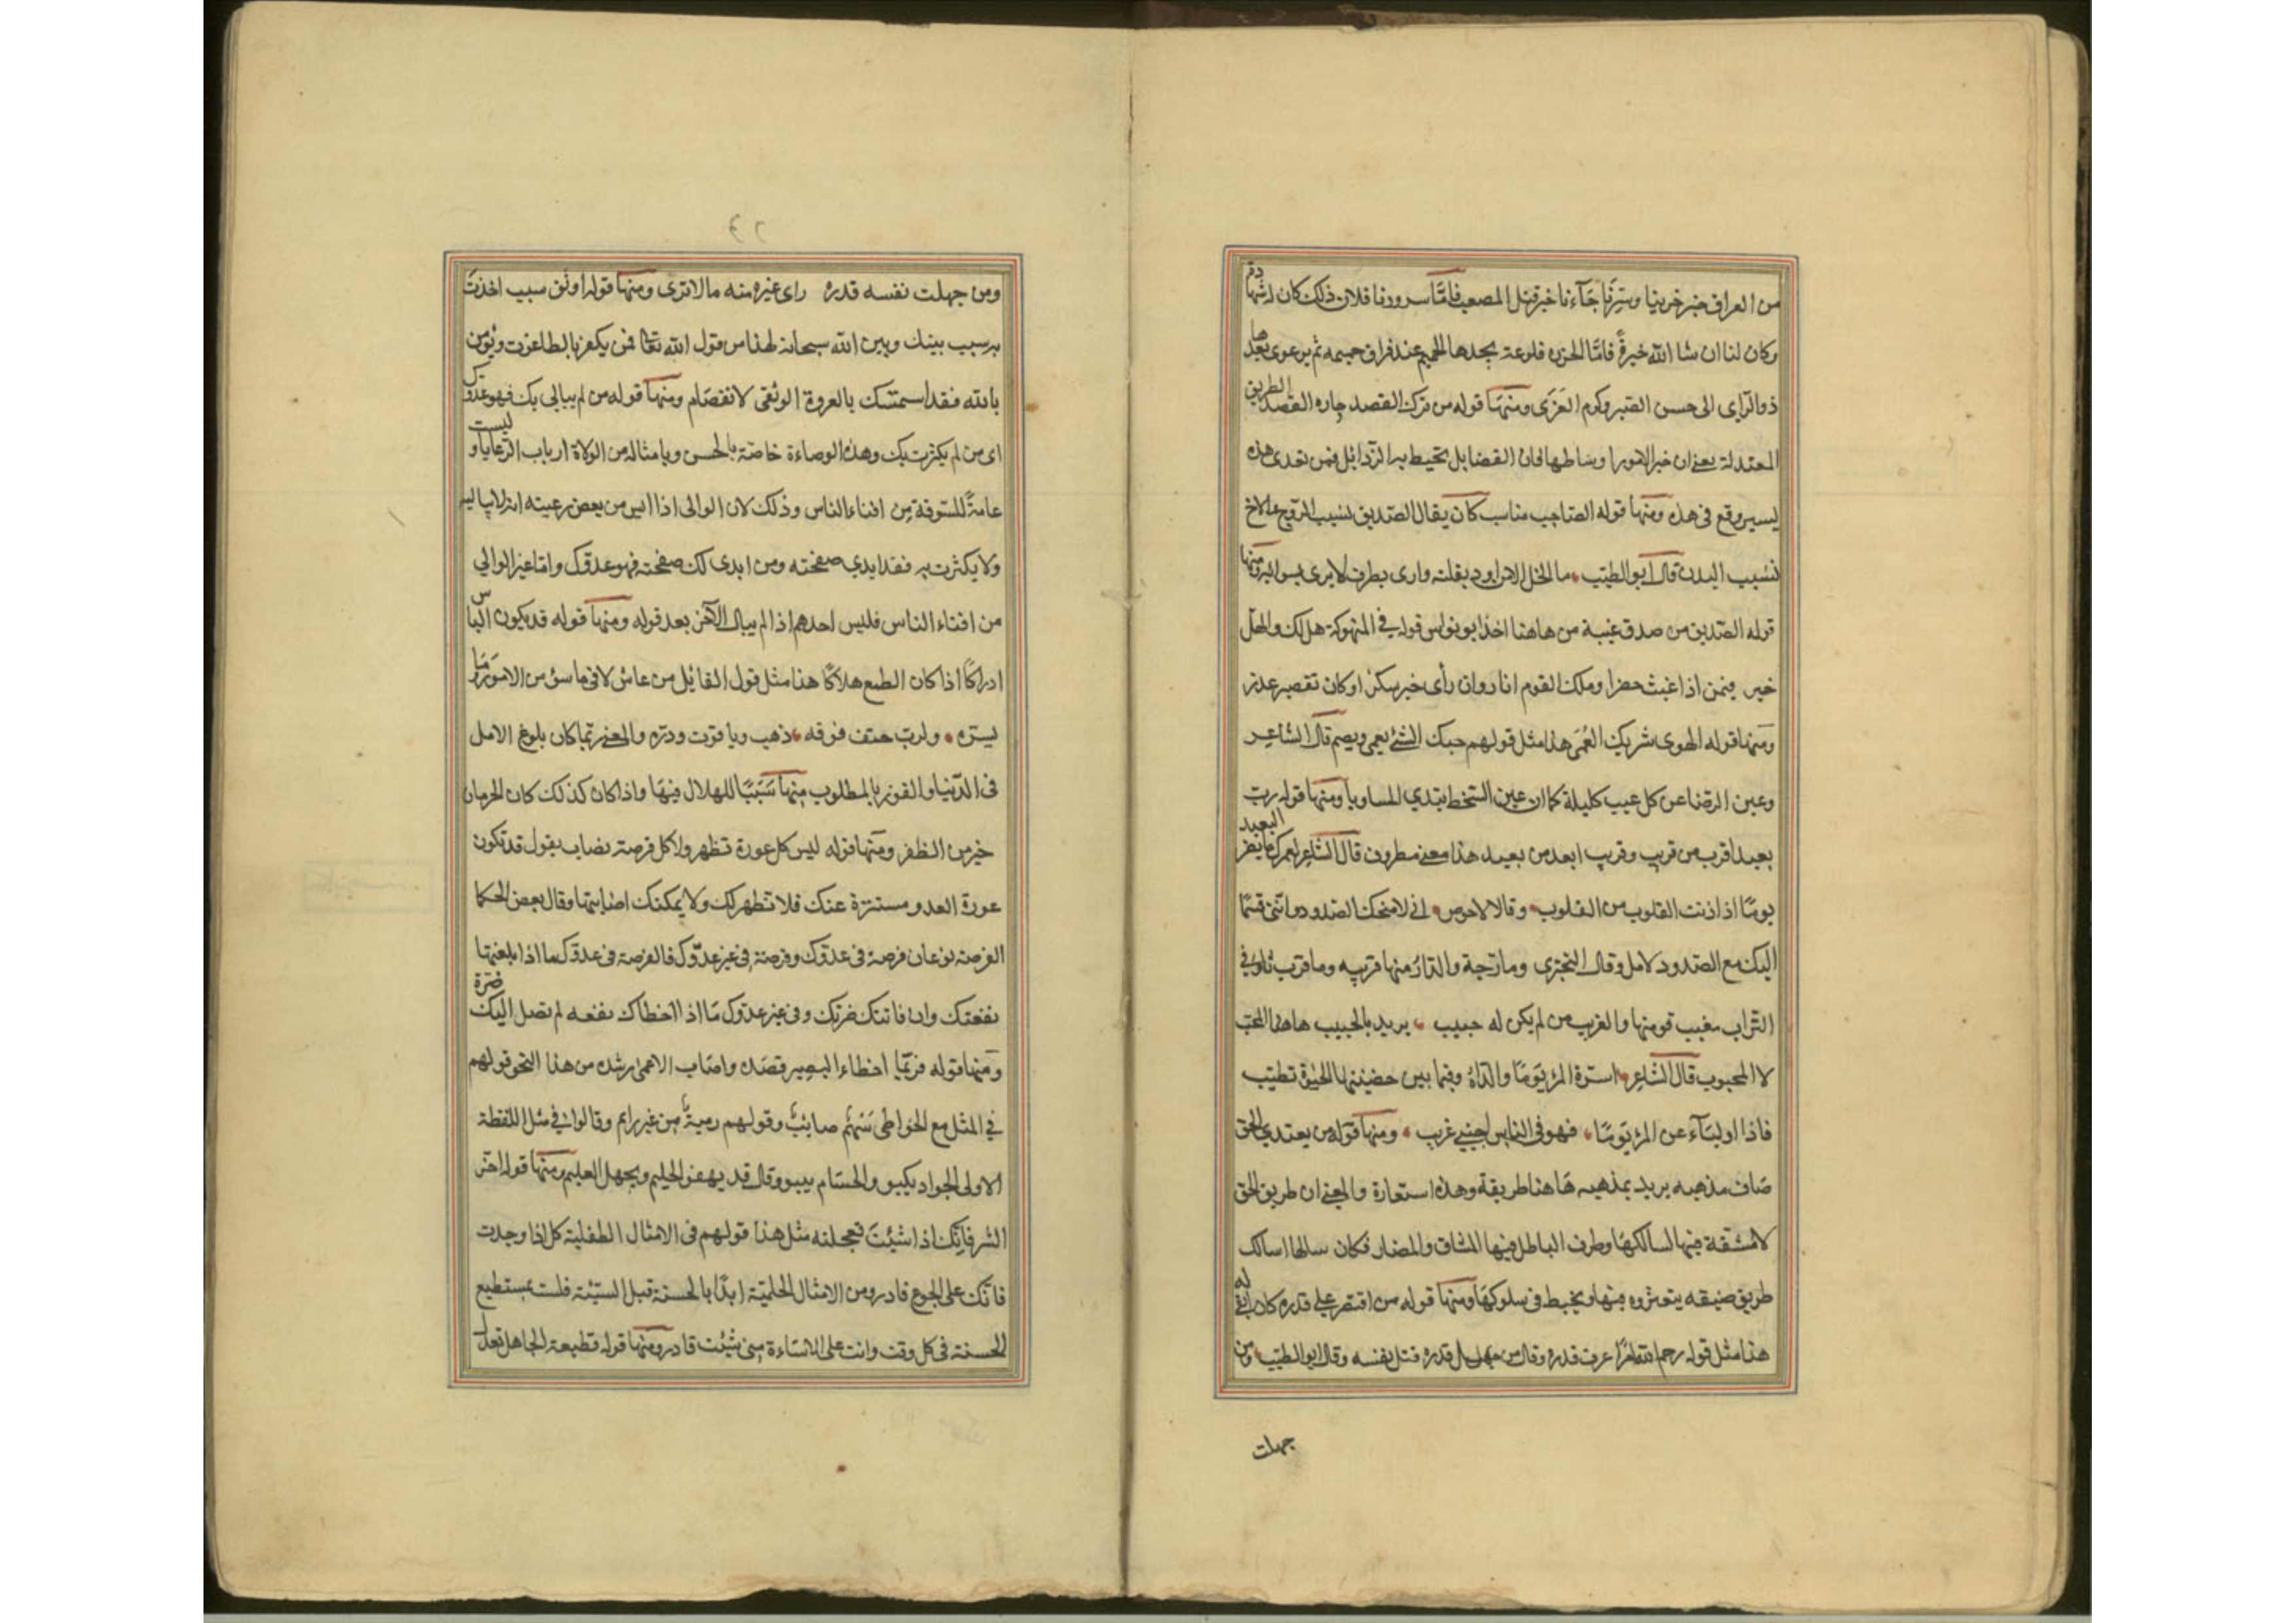 من العراق خبر خزينا وسترنا جآءنا خبر قتل المصعب فامّا سرورنا فلان ذلك كان له شهادة
وكان لنا ان شا الله خيرةً فامّا الحزن فلوعة يجدها الحميم عند فراق حميمه ثم يرعوى بعدها
ذو الرّاى الى حسن الصّبر وكرم العَزَى ومنهَا قوله من ترك القصد جاره القصد الطريق
المعتدلة يعنى ان خير الامورا وساطها فان الفضايل تحيط بها الرّذائل فمن تعدى هذه
يسير وقع فى هذه ومنها قوله الصّاحب مناسب كان يقال الصّديق نسيب الرّوح والاخ
نسيب البدن قال ابو الطيّب ما الخل الا من اود بقلبه وارى بطرف لا يرى بسوايه ومنها
قوله الصّديق من صدق غيبة من هاهنا اخذ ابو نواس قوله فى المنهوكة هل لك والهل
خير فيمن اذا غبت حضرا وملك القوم اثار وان رأى خير شكر او كان تقصير عذر
ومنها قوله الهوى شريك العُمَى هذا مثل قولهم حبك الشئ يعمى ويصم قال الشاعر
وعين الرضا عن كل عيب كليلة كما ان عين السّخط تبدي المساويا ومنها قوله ربّ
بعيد اقرب من قريب وقريب ابعد من بعيد هذا معنى مطروق قال الشاعر لعمرك ما يضر البعيد
يومًا اذا دنت القلوب من القلوب وقال الاحوص انى لامنحك الصّدود واننى قسمًا
اليك مع الصّدود لامل وقال البحترى وما زجة والدّار منها قريبه وما قرب ثاوٍ فى
التّراب مغيب قومنها والغريب من لم يكن له حبيب يريد بالحبيب هاهنا المحبّ
لا المحبوب قال الشاعر اسرة المرؤ يَومًا والداهُ وفيما بين حضنيهما الحيوة تطيب
فاذا وليَاء عن المرؤ يَومًا فهو فى الناس اجنبي غريب ومنها قوله من يعتدى الحق
ضاق مذهبه يريد بمذهبه هَاهنا طريقة وهذه استعارة والمعنى ان طريق الحق
لا مشقة فيها لسالكهَا وطرق الباطل فيها المشاق والمضار فكان سالكها سالك
طريق ضيقه يتعثروه فيها ويخبط فى سلوكهَا ومنها قوله من اقتصر على قدره كان ابقى له
هذا مثل قوله رحم الله امرًا عرف قدره وقال من جهل قدره قتل نفسه وقال ابو الطيّب ومن
جهلت
ومن جهلت نفسه قدره راى غيره منه ما لا ترى ومنها قوله اوثق سبب اخذتَ
به سبب بينك وبين الله سبحانه هذا من قول الله تعالى فمن يكفر بالطاغوت ويؤمن
بالله فقد استمسك بالعروة الوثقى لا انفصَام ومنها قوله من لم يبالى بك فهو عدوّك
اى من لم يكترث بك وهذه الوصاءة خاصّة بالحسن وبامثاله من الولاة ارباب الرّعايا وليست
عامةً للسوقة مِن افناء الناس وذلك لان الوالى اذا انس من بعض رعيته انه لا يباليه
ولا يكترث به فقد ابدى صفحته ومن ابدى لك صفحته فهو عدوّك وامّا غير الوالي
من افناء الناس فليس احدهم اذا لم يبال الآخر بعدو له ومنها قوله قد يكون الياس
ادراكًا اذا كان الطمع هلاكًا هذا مثل قول القائل من عاش لاقى ما سؤ من الامور وَمَا
يسرّه ولربّ حتف فوقه ذهب وياقوت ودرّه والمعنى ربّما كان بلوغ الامل
فى الدّنيا والفوز بالمطلوب منها سَبَبًا للهلال فيهَا واذا كان كذلك كان الحرمان
خير من الظفر ومنها قوله ليس كل عورة تظهر ولا كل فرصة تصَاب يقول قد تكون
عورة العدو مستترة عنك فلا تظهر لك ولا يمكنك اصَابتها وقال بعض الحكما
الفرصة نوعان فرصة فى عدوّك وفرصة فى غير عدوّك فالفرصة فى عدوّك ما اذا بلغتها
نفعتك وان فاتتك ضرتك وفى غير عدوّك مَا اذا اخطاك نفعه لم تصل اليك ضرّه
ومنها قوله فربّما اخطاء البصير قصده واصَاب الاعمى رشده من هذا النحو قولهم
في المثل مع الخواطى سَهْمُ صائبٌ وقولهم رميةٌ من غير رام وقالوا فى مثل اللفظة
الاولى الجواد يكبو والحسَام ينبو وقال قد يهفو الحليم ويجهل العليم ومنها قوله اخّر
الشر فانّك اذا شئتَ تعجلته مثل هذا قولهم فى الامثال الطفلية كل اذا وجدت
فانّك على الجوع قادر ومن الامثال الحكميّة ابدًا بالحسنة قبل السيّئة فلست بمستطيع
للحسنة فى كل وقت وانت على الاسَاءة متى شئت قادر ومنها قوله قطيعة الجاهل تعدل